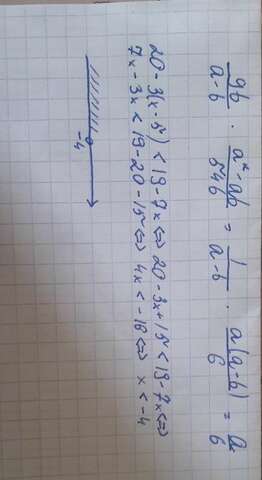 9b/(a-b) · (a²-ab)/(54b) = 1/(a-b) · a(a-b)/6 = a/6
20-3(x-5)<19-7x⇔20-3x+15<19-7x⇔
7x-3x<19-20-15⇔4x<-16⇔x<-4
-4